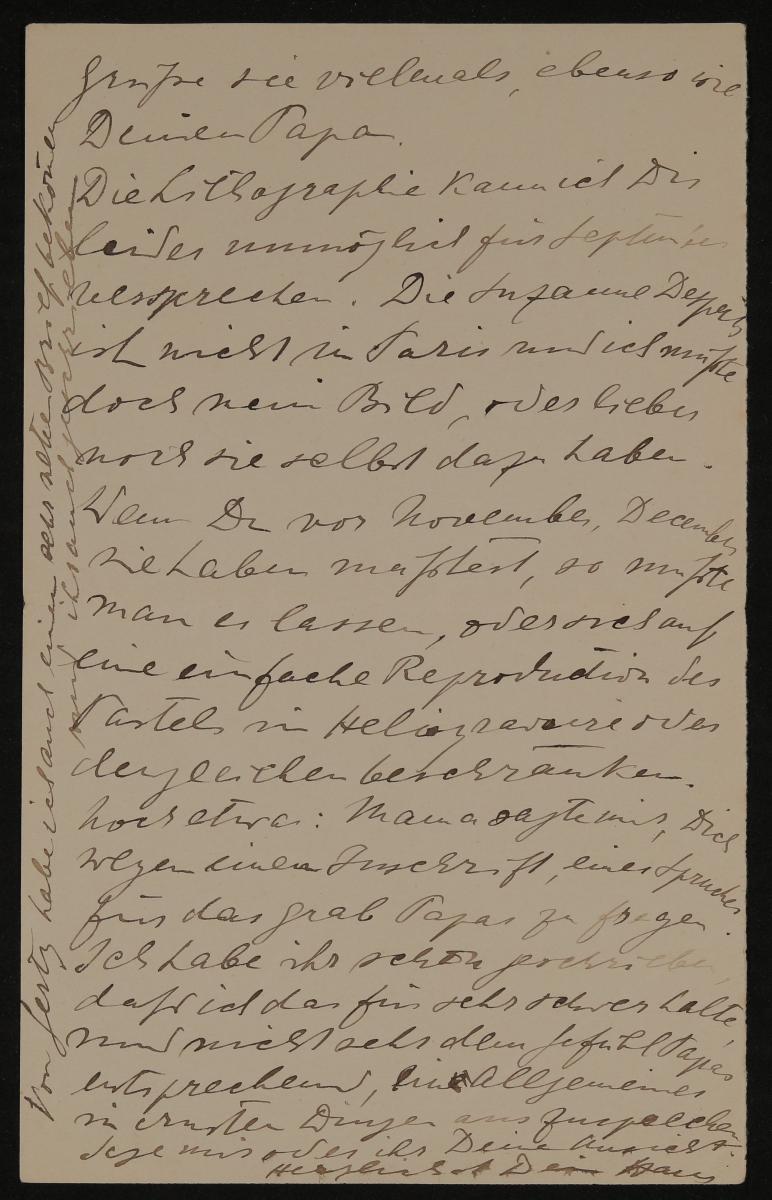 Grüße sie vielmals, ebenso wie
Deinen Papa.
Die Lithographie kann ich Dir
leider unmöglich für September
versprechen. Die Suzanne Desprès
ist nicht in Paris und ich müßte
doch mein Bild, oder lieber
noch sie selbst dazu haben.
Wenn Du vor November, December
sie haben müßtest, so müßte
man es lassen, oder sich auf
eine einfache Reproduction des
Pastels in Heliogravure oder
dergleichen beschränken.
Noch etwas: Mama sagte mir, Dich
wegen einer Inschrift, eines Spruches
für das Grab Papas zu fragen.
Ich habe ihr schon geschrieben,
daß ich das für sehr schwer halte,
und nicht sehr dem Gefühl Papas
entsprechend, Allgemeines
in ernsten Dingen auszusprechen.
Sage mir oder ihr Deine Ansicht.
Herzlichst Dein Hans
Von habe ich auch einen sehr netten Brief bekommen
und ihr auch geschrieben